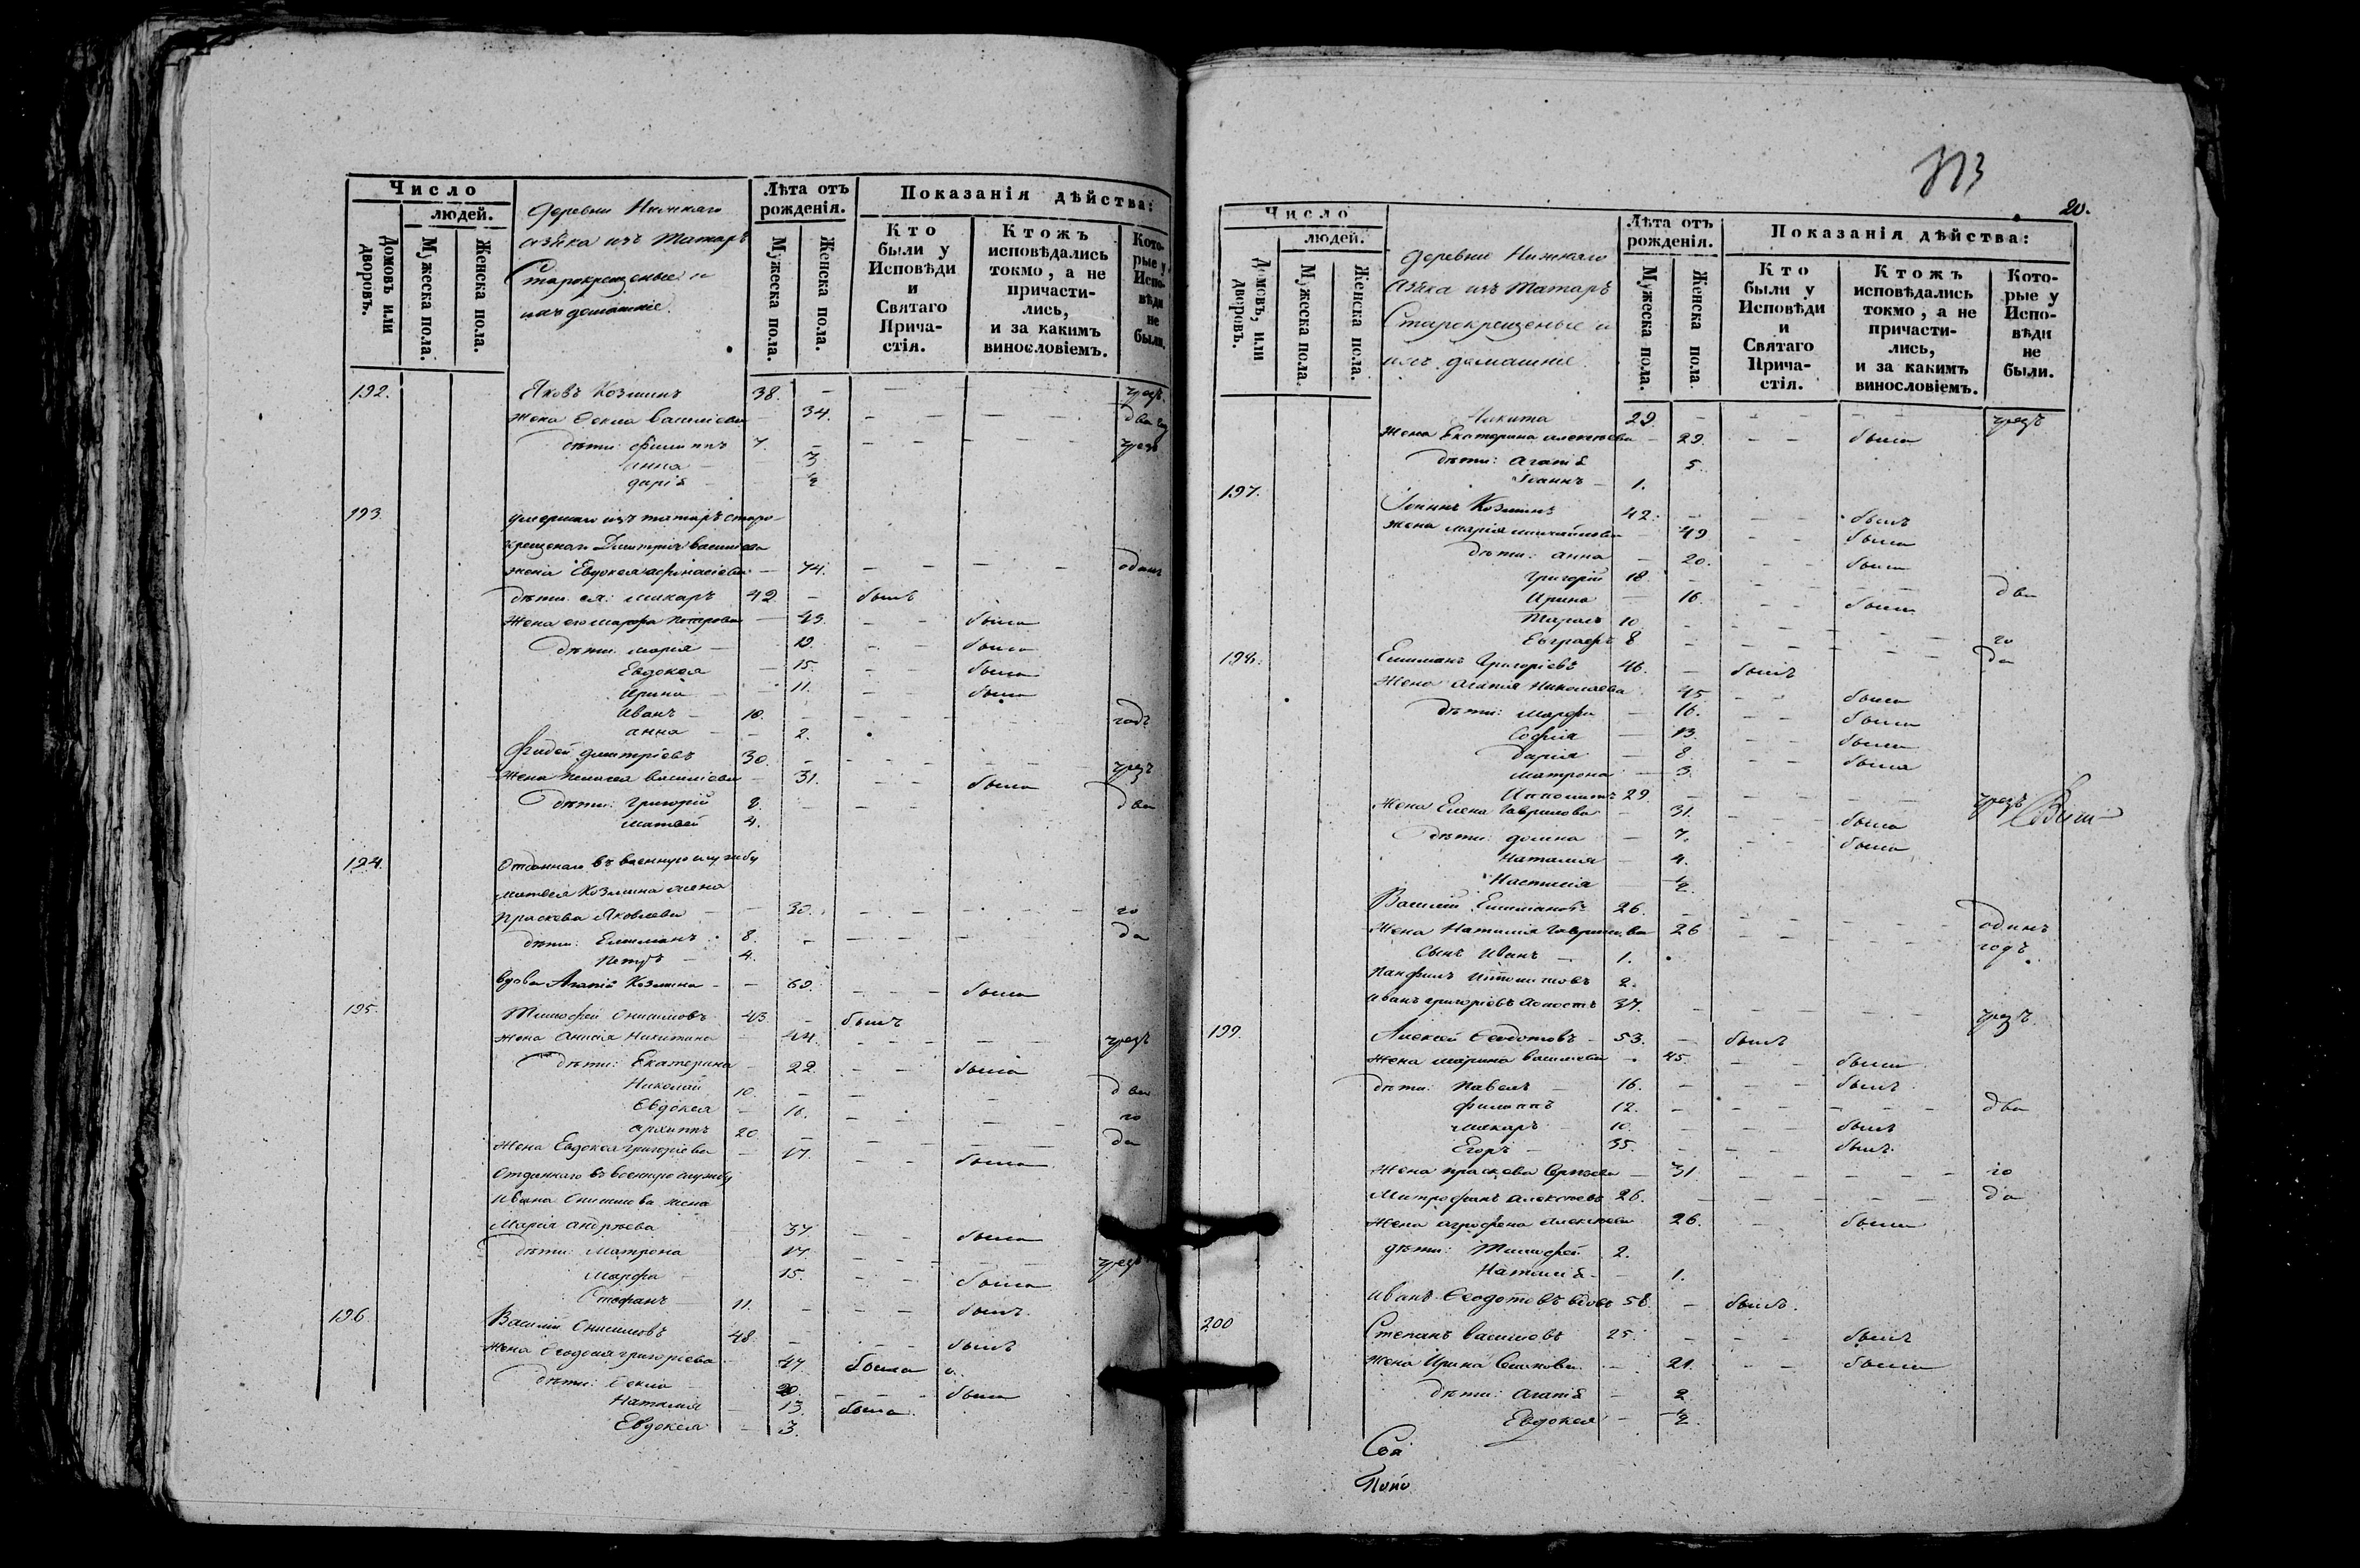 Число
людей.
Домовъ или дворовъ.
Мужеска пола.
Женска пола.
деревни Нижняго
азяка изъ татаръ
Старокрещеные и
ихъ домашніе.
Лѣта отъ рожденія.
Мужеска пола.
Женска пола.
Показанія дѣйства:
Кто были у Исповѣди и Святаго Причастія.
Ктожъ исповѣдались токмо, а не причастились, и за какимъ винословіемъ.
Которые у Исповѣди не были.
192. Яковъ Козминъ 38. — чрез.
жена Фекла Василіева 34. — два
дѣти: филиппъ 7. — чрез
анна — 3
дарія — ½
193. умершаго изъ татаръ старо-
крещенаго Дмитрія Василіева
жена Евдокея афанасіева — 74. — одинъ
дѣти ея: макаръ 42 — былъ
жена его марфа петрова — 43. — была
дѣти: марія — 19. — была
Евдокея — 15. — была
Ирина — 11. — была
Иванъ — 10. — годъ
анна — 2.
фадей дмитріевъ 30. — чрез
жена пелагея Василіева — 31. — была
дѣти: Григорій 8. — два
матвей 4.
194. Отданнаго въ военную службу
матвея Козмина жена
Праскева Яковлева — 30. — го
дѣти: Емилианъ 8. — да
Петръ — 4.
вдова Агапія Козмина — 69. — была
195. Тимофей Онисимовъ 43. — былъ
жена Анисія Никитина — 44. — чрезъ
дѣти: Екатерина — 22. — была
Николай 10. — два
Евдокея — 16. — го
архиппъ 20 — да
жена Евдокея григоріева — 17. — была
Отданнаго въ военную службу
Ивана Онисимова жена
Марія андреева 37 — была
дѣти: Матрона 17. — чрезъ
Марфа — 15. — была
Стефанъ 11. — былъ
196 Василій Онисимовъ 48. — былъ
жена Феодосия григоріева — 47 была
дѣти: Фекла — 20. — была
Наталия — 13. была
Евдокея — 3.
313
20.
Число
людей.
Домовъ, или дворовъ.
Мужеска пола.
Женска пола.
деревни Нижняго
Азяка изъ татаръ
Старокрещеные и
ихъ домашніе
Лѣта отъ рожденія.
Мужеска пола.
Женска пола.
Показанія дѣйства:
Кто были у Исповѣди и Святаго Причастія.
Ктожъ исповѣдались токмо, а не причастились, и за какимъ винословіемъ.
Которые у Исповѣди не были.
Никита 29. — чрезъ
жена Екатерина алексѣева — 29. — была
дѣти: Агапія 5.
Іоаннъ — 1.
197. Іоаннъ Козминъ 42. — былъ
жена марія михайлова — 49 — была
дѣти: анна — 20. — была
григорій 18 — два
Ирина — 16. — была
Тарасъ 10
Евграфъ 8 — го
198. Емилианъ Григоріевъ 46. — былъ — да
жена агапия Николаева 45 — была
дѣти: Марфа — 16. — была
Софія — 13. — была
Дарія — 8 — была
Матрона — 3.
Ипполитъ 29. — чрезъ
жена Елена Гаврилова — 31. — была
дѣти: домна — 7. — была
Наталия — 4.
Настасія ½
Василій Емилиановъ 26. — одинъ
жена Наталия Гаврилова 26 — годъ
сынъ Иванъ — 1.
Панфилъ Ипполитовъ 2.
Иванъ григоріевъ холостъ 37. — чрезъ
199. Алексей Феодотовъ — 53. — былъ
жена марина Василіева — 45. — была
дѣти: Павелъ — 16. — былъ
филиппъ 12. — два
макаръ 10. — былъ
Егоръ — 35. — былъ
жена праскева Сергѣева — 31. — го
Митрофанъ алексѣевъ 26. — да
жена агрофена алексѣева 26. — была
дѣти: Тимофей 2.
Наталія — 1.
Иванъ Феодотовъ вдовъ 58. — былъ.
200 Степанъ Василіевъ 25. — былъ
жена Ирина Семенова — 21. — была
дѣти: Агапія — 2
Евдокея — ½